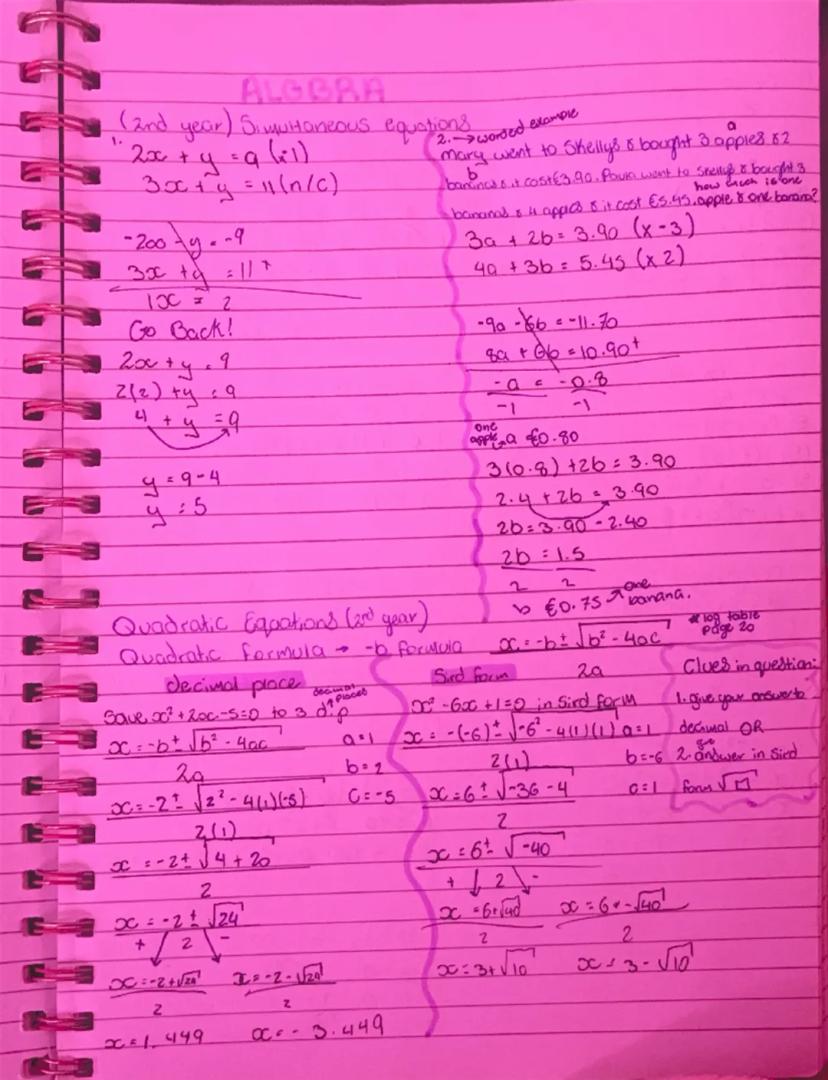 ALGEBRA
(2nd year) Simultaneous equations
1.
2x + y = 9 (x-1)
3x + y = 11 (n/c)
-2x - y = -9
3x + y = 11 +
1x = 2
Go Back!
2x + y = 9
2(2) + y = 9
4 + y = 9
y = 9 - 4
y = 5
2. → worded example
a
mary went to Shellys & bought 3 apples & 2
b
bananas & it cost €3.90. Paula went to Shellys & bought 3
how much is one
bananas & 4 apples & it cost €5.45. apple & one banana?
3a + 2b = 3.90 (x-3)
4a + 3b = 5.45 (x2)
-9a - 6b = -11.70
8a + 6b = 10.90 +
-a = -0.8
-1 -1
one
apple → a €0.80
3(0.8) + 2b = 3.90
2.4 + 2b = 3.90
2b = 3.90 - 2.40
2b = 1.5
2 2
b €0.75 → one banana.
Quadratic Equations (2nd year)
Quadratic formula → -b formula x = -b ± √b² - 4ac
2a
* log table
page 20
decimal place
decimal places
Solve x² + 2x - 5 = 0 to 3 d.p
x = -b ± √b² - 4ac
2a
a = 1
b = 2
c = -5
x = -2 ± √2² - 4(1)(-5)
2(1)
x = -2 ± √4 + 20
2
x = -2 ± √24
+ 2 -
x = -2 + √24 x = -2 - √24
2 2
x = 1.449 x = -3.449
Sird form
x² - 6x + 1 = 0 in Sird form
x = -(-6) ± √-6² - 4(1)(1) a = 1
2(1) b = -6
x = 6 ± √-36 - 4 c = 1
2
x = 6 ± √-40
+ 2 -
x = 6 + √40 x = 6 - √40
2 2
x = 3 + √10 x = 3 - √10
Clues in question:
1. give your answer to
decimal OR
2. give answer in Sird
form √□